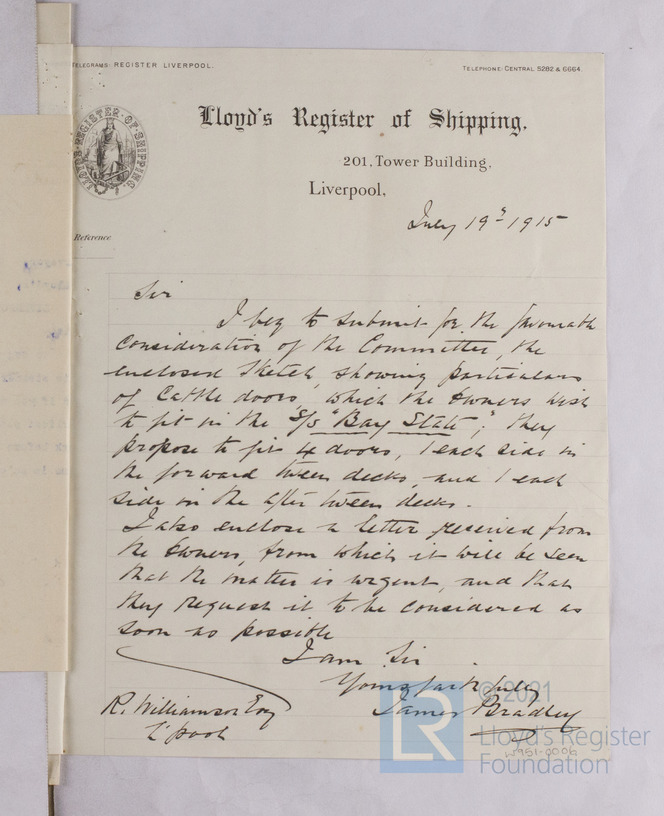 TELEGRAMS: REGISTER LIVERPOOL.
TELEPHONE: CENTRAL 5282 & 6664.
Lloyd's Register of Shipping.
LLOYD'S·REGISTER·OF·SHIPPING.
201, Tower Building,
Liverpool,
July 19th 1915
Reference
Sir
I beg to submit for the favourable
consideration of the Committee, the
enclosed sketch, showing particulars
of Cattle doors, which the Owners wish
to fit in the S/S "Bay State", they
propose to fit 4 doors, 1 each side in
the forward tween decks, and 1 each
side in the after tween decks.
I also enclose a letter received from
the Owners, from which it will be seen
that the matter is urgent, and that
they request it to be considered as
soon as possible
I am Sir
Yours faithfully
James Bradley
R. Williamson Esq
L'pool
W951-0006
© 2021
LR
Lloyd's Register
Foundation